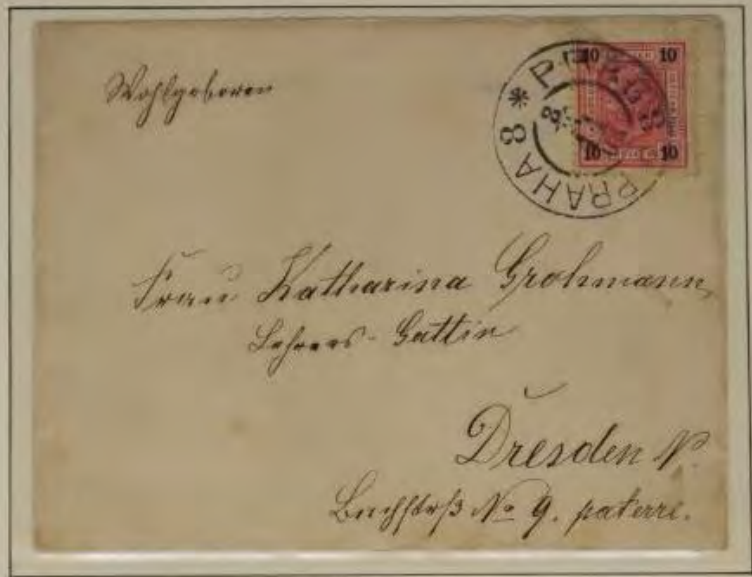 Wohlgeboren
10 10
10 10
PRAHA 8 *
Frau Katharina Grohmann
Lehrers-Gattin
Dresden N.
No 9. paterre.